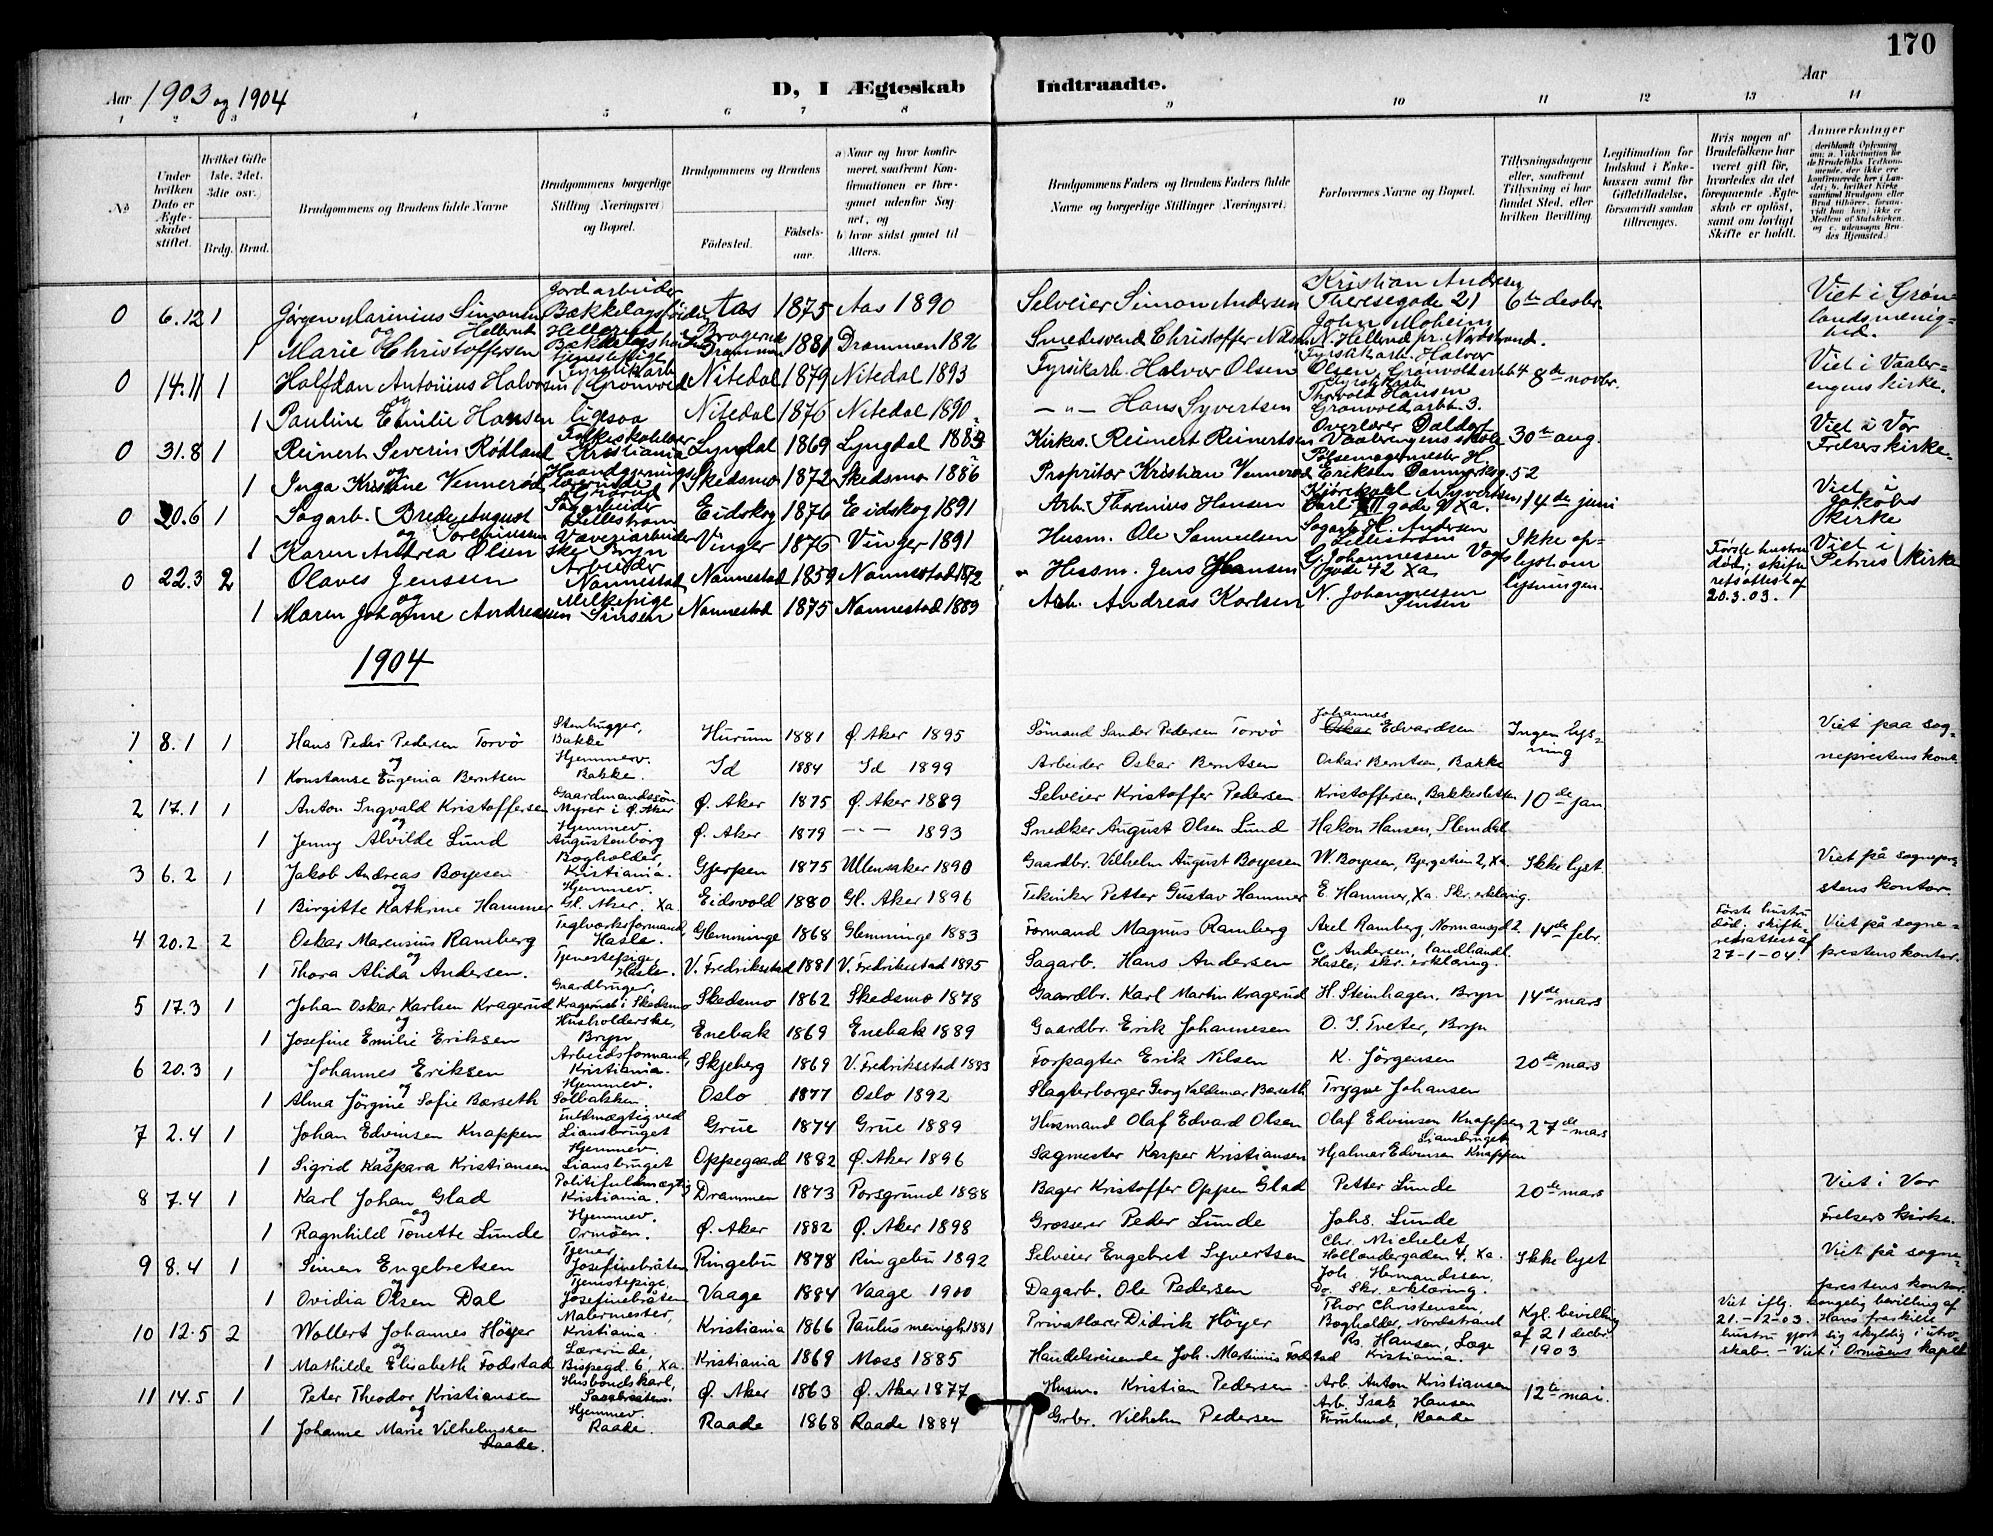 170
Aar 1903 og 1904
D, I Ægteskab Indtraadte.
Aar
1 2 3 4 5 6 7 8 9 10 11 12 13 14
No.
Under hvilken Dato er Ægteskabet stiftet.
Hvilket Gifte 1ste. 2det. 3die osv.
Brdg. Brud.
Brudgommens og Brudens fulde Navne
Brudgommens borgerlige Stilling (Næringsvei) og Bopæl.
Brudgommens og Brudens
Fødested.
Fødselsaar.
a) Naar og hvor konfirmeret, saafremt Konfirmationen er foregaaet udenfor Sognet, og
b) hvor sidst gaaet til Alters.
Brudgommens Faders og Brudens Faders fulde Navne og borgerlige Stillinger (Næringsvei)
Forlovernes Navne og Bopæl.
Tillysningsdagene eller, saafremt Tillysning ei har fundet Sted, efter hvilken Bevilling.
Legitimation for Indskud i Enkekassen samt for Giftetilladelse, forsaavidt saadan tiltrænges.
Hvis nogen af Brudefolkene har været gift før, hvorledes da det foregaaende Ægteskab er opløst, samt om lovligt Skifte er holdt.
Anmærkninger
0 6.12 1 Jørgen Marinius Simonsen Jordarbeider Bækkelagshøiden Aas 1875 Aas 1890 Selveier Simon Andersen Kristian Andersen Theresegade 21 6te desbr. Viet i Grønlandsmenighed.
og
1 Marie Christoffersen Hellerud Bækkelagshøiden Drammen 1881 Drammen 1896 Smedesvend Christoffer Nilsen John Moheim N. Hellerud pr. Nordstrand.
0 14.11 1 Halfdan Antonius Halvorsen Fyrstikarb Grønvold Nitedal 1879 Nitedal 1893 Fyrstikarb. Halvor Olsen Fyrstikarb. Halvor Olsen, Grønvold arbb 4 8de novbr. Viet i Vaalerengens kirke.
og
1 Pauline Emilie Hansen ligesaa Nitedal 1876 Nitedal 1890 — " — Hans Syvertsen Fyrstikarb. Thorvold Hansen Grønvold arbb. 3.
0 31.8 1 Reinert Severin Rødland Folkeskolelærer Kristiania Lyngdal 1869 Lyngdal 1883 Kirkes. Reinert Reinertsen Overlærer Daldorf Vaalerengens skole 30te aug. Viet i Vor Frelsers kirke.
og
1 Inga Kristine Vennerød Haandgjernings lærerinde Grorud Skedsmo 1872 Skedsmo 1886 Propritær Kristian Vennerød Pølsemagermester H. Eriksen Dannevigsg. 52
0 20.6 1 Sagarb. Brede August Torleinssen Sagarbeider Lillestrøm Eidskog 1876 Eidskog 1891 Arb. Thorenius Hansen Kjørekarl A. Syvertsen Carl XII gade 9 Xa. 14de juni Viet i Jakobs kirke
og
1 Karen Andrea Olsen Væveriarbeiderske Bryn Vinger 1876 Vinger 1891 Husm. Ole Samuelsen Sagarb H. Andersen Lillestrøm
0 22.3 2 Olaves Jenssen Arbeider Nannestad Nannestad 1859 Nannestad 1872 Husm. Jens Hansen G. Johannessen Vogts gade 42 Xa Ikke oplyst om lysningen. Første hustru død; skifteretsattest af 20.3.03. Viet i Petrus kirke
og
1 Maren Johanne Andreassen Melkepige Sinsen Nannestad 1875 Nannestad 1889 Arb. Andreas Karlsen N. Johannessen Sinsen
1904
1 8.1 1 Hans Peder Pedersen Torvö Stenhugger, Bakke Hurum 1881 Ø. Aker 1895 Sømand Sander Pedersen Torvö Johannes Edvardsen Ingen lysning Viet paa sogneprestens kont.
og
1 Konstanse Eugenia Berntsen Hjemmev. Bakke. Id 1884 Id 1899 Arbeider Oskar Berntsen Oskar Berntsen, Bakke
2 17.1 1 Anton Ingvald Kristoffersen Gaardmandssøn Myrer i Ø. Aker Ø. Aker 1875 Ø. Aker 1889 Selveier Kristoffer Pedersen Kristoffersen, Bakkesletten 10de jan
og
1 Jenny Alvilde Lund Hjemmev. Augustenborg Ø. Aker 1879 — " — 1893 Snedker August Olsen Lund Hakon Hansen, Slemdal
3 6.2 1 Jakob Andreas Boyesen Bogholder, Kristiania. Gjerpen 1875 Ullensaker 1890 Gaardbr. Vilhelm August Boyesen W. Boyesen, Bjergstien 2, Xa. Ikke lyst Viet på sogneprestens kontor.
og
1 Birgitte Kathrine Hammer Hjemmev. Gl. Aker. Xa Eidsvold 1880 Gl. Aker 1896 Tekniker Petter Gustav Hammer E. Hammer, Xa. Skr. erklæring.
4 20.2 2 Oskar Marensius Ramberg Teglverksformand, Hasle. Glemminge 1868 Glemminge 1883 Formand Magnus Ramberg Axel Ramberg, Normansgd 2 14de febr. Første hustru död. skifteretsattest af 27-1-04. Viet på sogneprestens kontor.
og
1 Thora Alida Andersen. Tjenestepige, Hasle. V. Fredriksstad 1881 V. Fredriksstad 1895 Sagarb. Hans Andersen C. Andersen, Landhandl. Hasle, skr. erklæring.
5 17.3 1 Johan Oskar Karlsen Kragerud Gaardbruger, Kragerud i Skedsmo Skedsmo 1862 Skedsmo 1878 Gaardbr. Karl Martin Kragerud H. Steinhagen, Bryn 14de mars
og
1 Josefine Emilie Eriksen Husholderske, Bryn Enebak 1869 Enebak 1889 Gaardbr. Erik Johannesen O. S. Tveter, Bryn
6 20.3 1 Johannes Eriksen Arbeidsformand, Kristiania. Skjeberg 1869 V. Fredriksstad 1883 Forpagter Erik Nilsen K. Jörgensen 20de mars
og
1 Alma Jörgine Sofie Bærseth Hjemmev. Solbakken. Oslo 1877 Oslo 1892 Slagterborger Georg Valdemar Bærseth Trygve Johansen
7 2.4 1 Johan Edvinsen Knappen Fuldmægtig ved Liansbruget Grue 1874 Grue 1889 Husmand Olaf Edvard Olsen Olaf Edvinsen Knappen Liansbruget 27de mars
og
1 Sigrid Kaspara Kristiansen Hjemmev. Liansbruget Oppegaard 1882 Ø. Aker 1896 Sagmester Kasper Kristiansen Hjalmar Edvinsen Knappen
8 7.4 1 Karl Johan Glad Politifuldmægtig Kristiania. Drammen 1873 Porsgrund 1888 Bager Kristoffer Oppen Glad Petter Lunde 20de mars Viet i Vor Frelsers kirke.
og
1 Ragnhild Tonette Lunde Hjemmev. Ormöen. Ø. Aker 1882 Ø. Aker 1898 Grosserer Peder Lunde Johs. Lunde
9 8.4 1 Simen Engebretsen Tjener Josefinebråten Ringebu 1878 Ringebu 1892 Selveier Engebret Syvertsen Chr. Michelet Hollændergaden 4, Xa. Ikke lyst Viet på sogneprestens kontor.
og
1 Ovidia Olsen Dal Tjenestepige, Josefinebråten Vaage 1884 Vaage 1900 Dagarb. Ole Pedersen Joh. Hermandssen, Do. Skr. erklæring.
10 12.5 2 Wollert Johannes Höyer Malermester, Kristiania. Kristiania 1866 Paulus menigh. 1881 Privatlærer Didrik Höyer Thor Christensen, Bogholder, Nordstrand Kgl. bevilling af 21 decbr. 1903 Viet iflg. kongelig bevilling af 21.-12-03. Hans fraskilte hustru gjort sig skyldig i utroskab. - Viet i Ormöens kapel
og
1 Mathilde Elisabeth Fodstad Lærerinde, Bispegd. 6, Xa. Kristiania 1869 Moss 1885 Handelsreisende Joh. Martinius Fodstad Rs. Hansen, Loge Kristiania.
11 14.5 1 Peter Theodor Kristiansen Husbondskarl, Ø. Aker 1863 Ø. Aker 1877 Husm. Kristian Pedersen Arb. Anton Kristiansen 12te mai.
og
1 Johanne Marie Vilhelmssen Raade. Hjemmev. Raade. Raade 1868 Raade 1884 Grbr. Vilhelm Pedersen Arb. Isak Hansen Raade